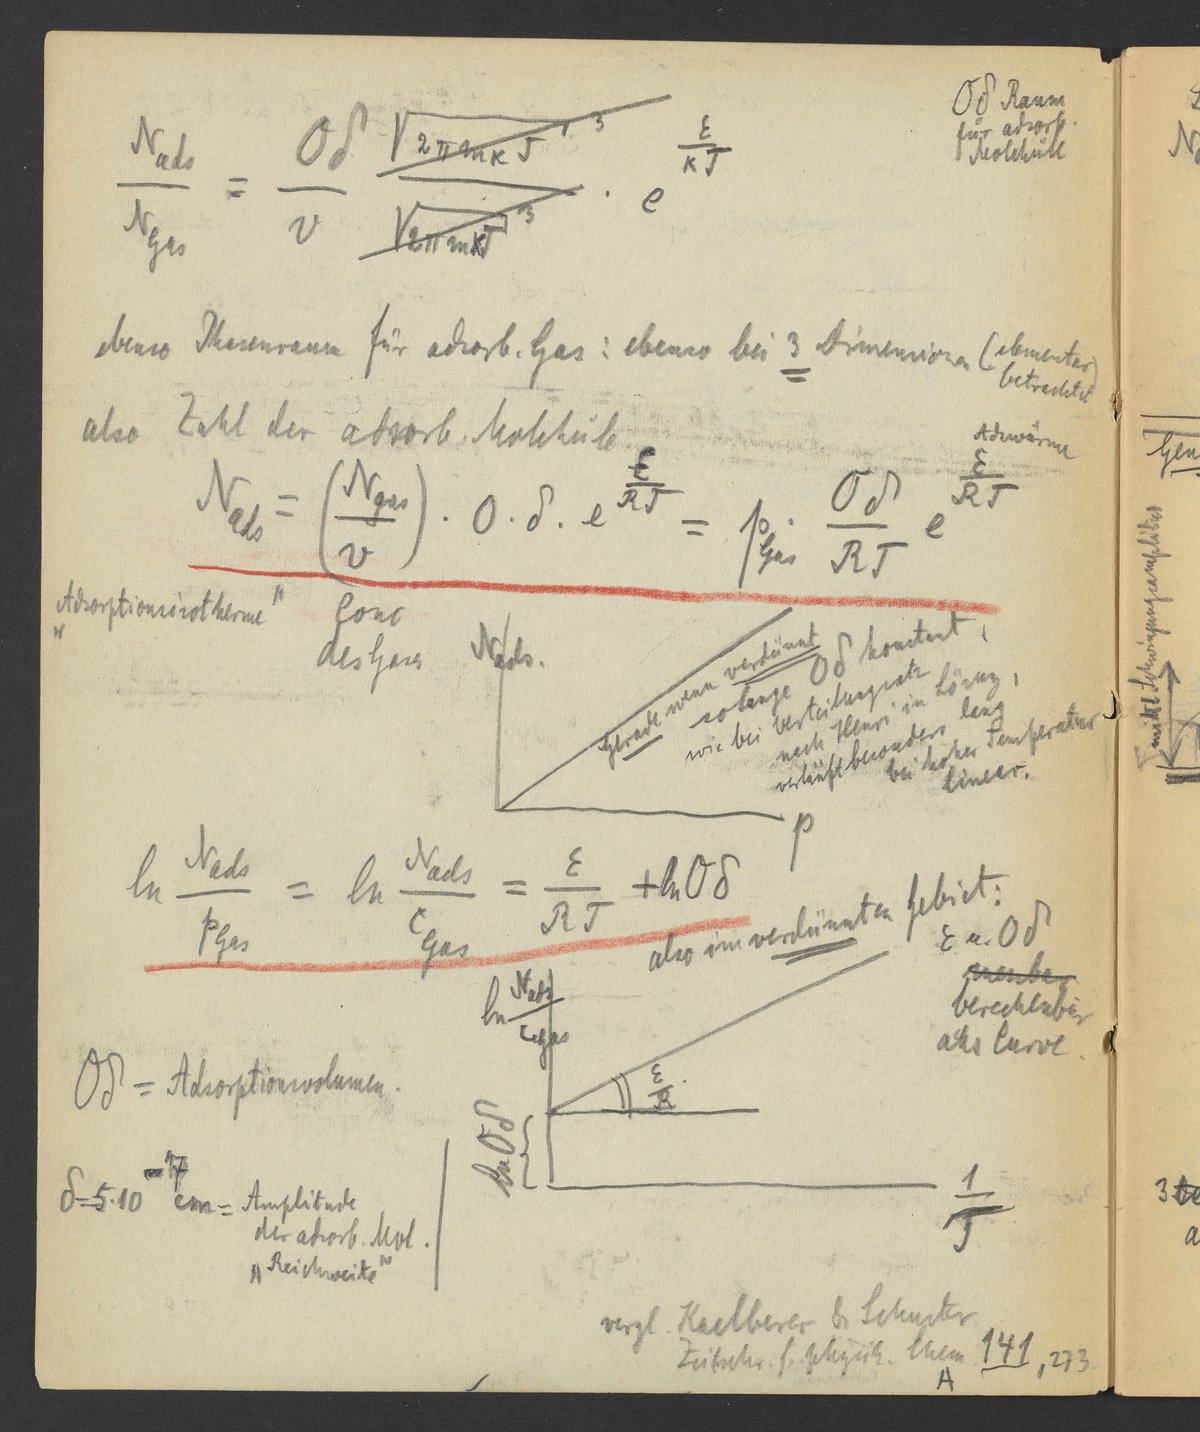 Oδ Raum
für adsorb.
Moleküle
N_ads / N_Gas = Oδ / v · √(2πmkT)³ / √(2πmkT)³ · e^(ε/kT)
ebenso Phasenraum für adsorb. Gas: ebenso bei 3 Dimensionen (elementar
betrachtet)
also Zahl der adsorb. Moleküle
Adswärme
N_ads = (N_gas / v) · O · δ · e^(ε/RT) = p_Gas · Oδ / RT e^(ε/RT)
„Adsorptionsisotherme"
Conc
des Gases
N_ads.
Gerade wenn verdünnt
solange Oδ konstant,
wie bei Verteilungssatz
nach Henri in Lösung,
verläuft besonders lang
bei hoher Temperatur
linear.
p
ln N_ads / p_Gas = ln N_ads / c_Gas = ε / RT + ln Oδ
also im verdünnten Gebiet:
ε u. Oδ
berechenbar
aus Curve.
ln N_ads / c_gas
ε / R
ln Oδ
1 / T
Oδ = Adsorptionsvolumen.
δ = 5·10 cm = Amplitude
der adsorb. Mol.
„Reichweite"
vergl. Kaelberer & Schuster
Zeitschr. f. physik. Chem 141, 273
A
N
Gen
mittl Schwingungsamplitude
3
a